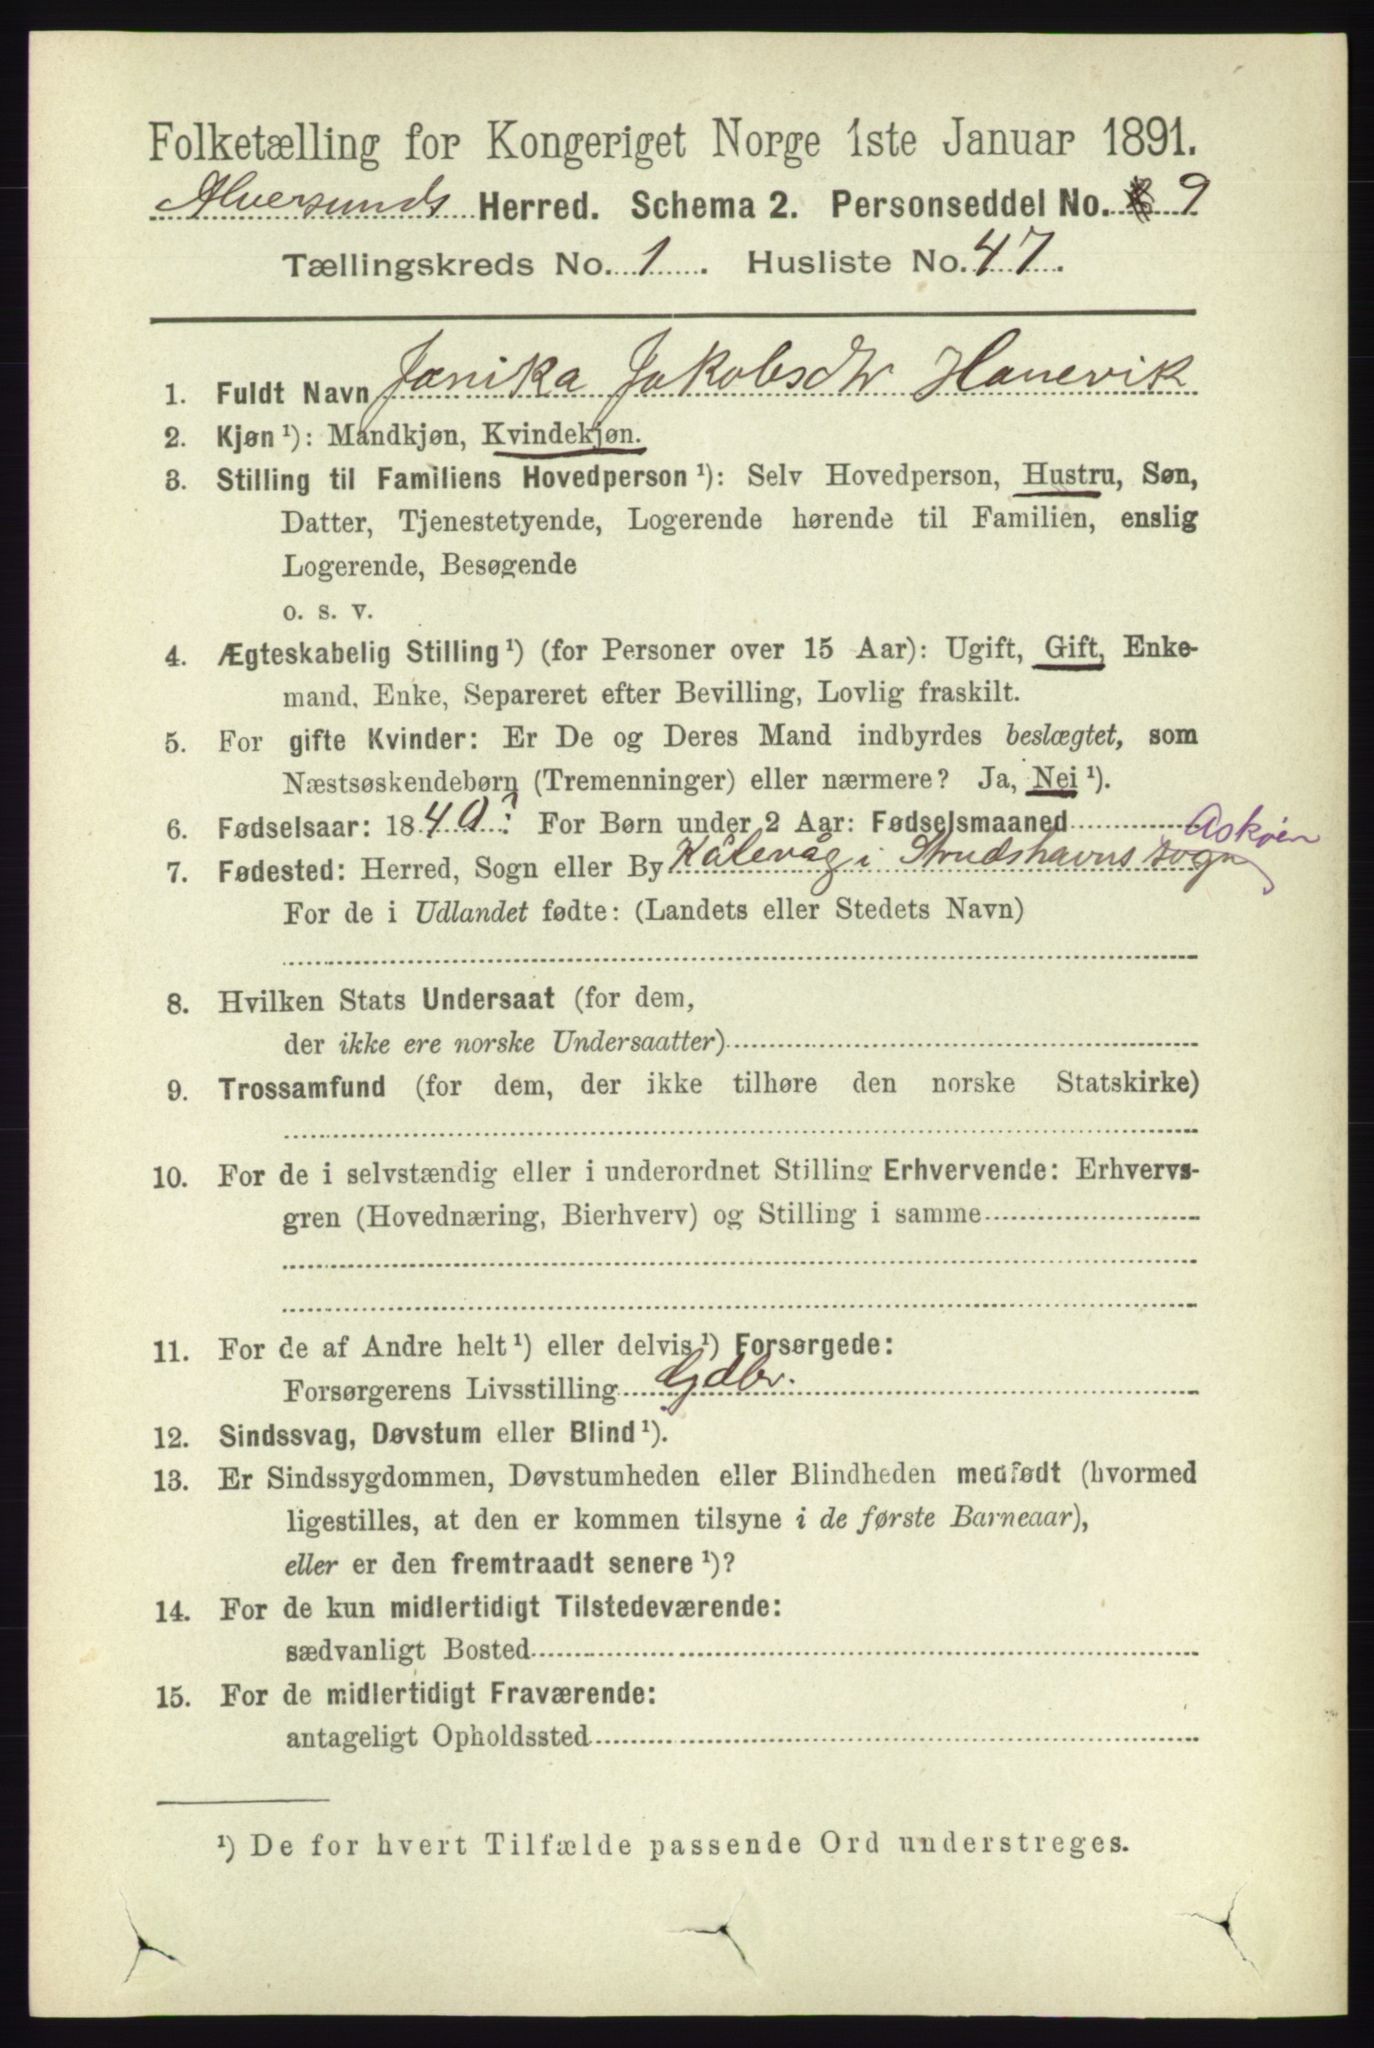 Folketælling for Kongeriget Norge 1ste Januar 1891.
Alversunds Herred. Schema 2. Personseddel No. 9
Tællingskreds No. 1. Husliste No. 47.
1. Fuldt Navn Janika Jakobsdtr Hanevik
2. Kjøn ¹): Mandkjøn, Kvindekjøn.
3. Stilling til Familiens Hovedperson ¹): Selv Hovedperson, Hustru, Søn,
Datter, Tjenestetyende, Logerende hørende til Familien, enslig
Logerende, Besøgende
o. s. v.
4. Ægteskabelig Stilling ¹) (for Personer over 15 Aar): Ugift, Gift, Enke-
mand, Enke, Separeret efter Bevilling, Lovlig fraskilt.
5. For gifte Kvinder: Er De og Deres Mand indbyrdes beslægtet, som
Næstsøskendebørn (Tremenninger) eller nærmere? Ja, Nei ¹).
6. Fødselsaar: 1840? For Børn under 2 Aar: Fødselsmaaned
Askøen
7. Fødested: Herred, Sogn eller By Kålevåg i Strudshavns sogn
For de i Udlandet fødte: (Landets eller Stedets Navn)
8. Hvilken Stats Undersaat (for dem,
der ikke ere norske Undersaatter)
9. Trossamfund (for dem, der ikke tilhøre den norske Statskirke)
10. For de i selvstændig eller i underordnet Stilling Erhvervende: Erhvervs-
gren (Hovednæring, Bierhverv) og Stilling i samme
11. For de af Andre helt ¹) eller delvis ¹) Forsørgede:
Forsørgerens Livsstilling Gdbr.
12. Sindssvag, Døvstum eller Blind ¹).
13. Er Sindssygdommen, Døvstumheden eller Blindheden medfødt (hvormed
ligestilles, at den er kommen tilsyne i de første Barneaar),
eller er den fremtraadt senere ¹)?
14. For de kun midlertidigt Tilstedeværende:
sædvanligt Bosted
15. For de midlertidigt Fraværende:
antageligt Opholdssted
¹) De for hvert Tilfælde passende Ord understreges.